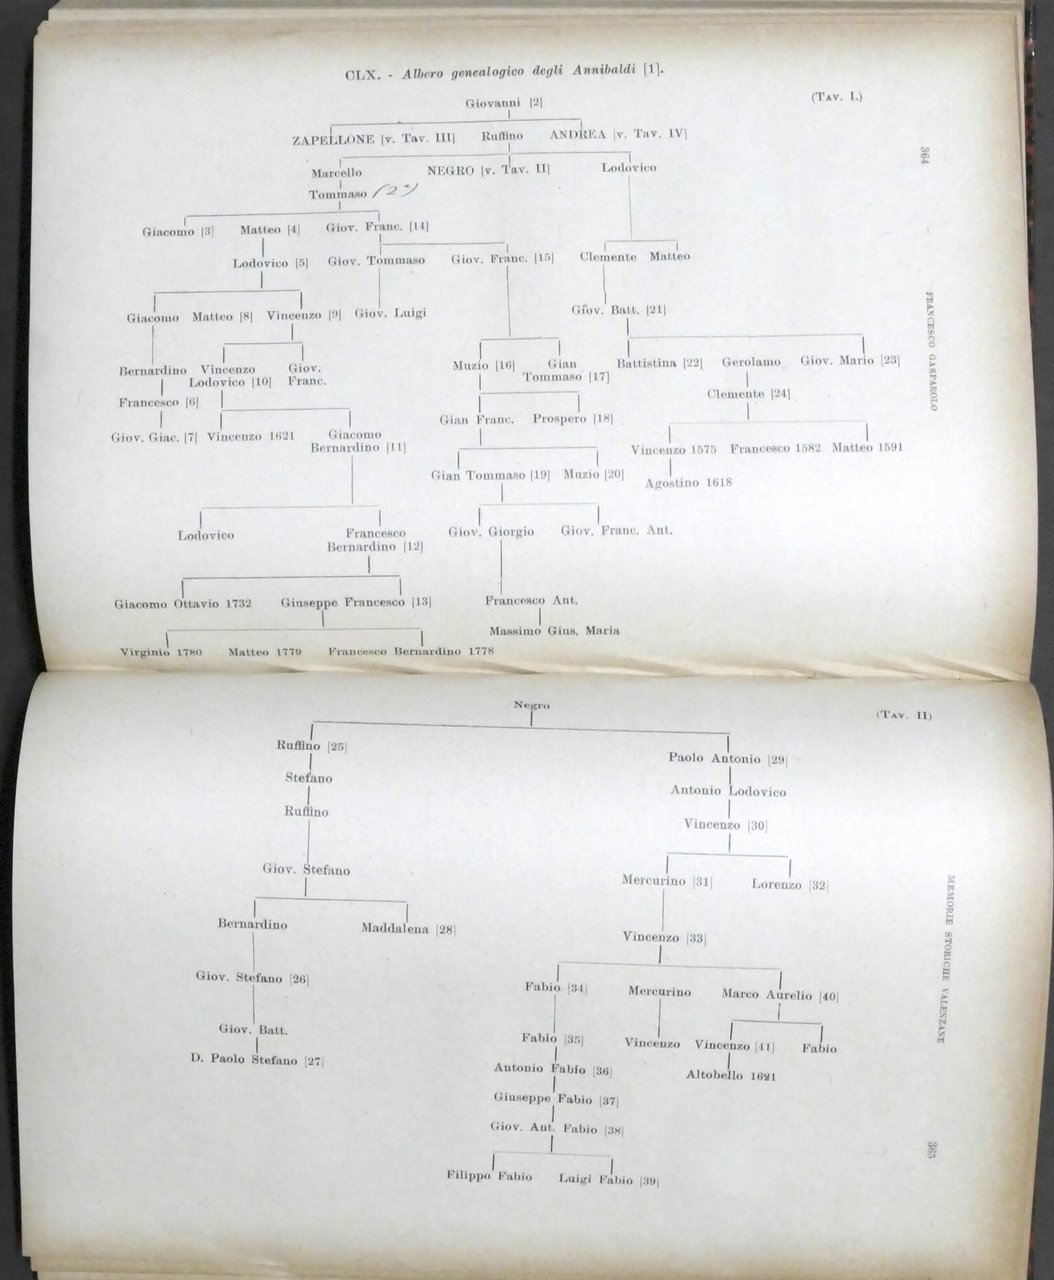 CLX. - Albero genealogico degli Annibaldi [1].
(Tav. I.)
Giovanni [2]
ZAPELLONE [v. Tav. III] Ruffino ANDREA [v. Tav. IV]
Marcello NEGRO [v. Tav. II] Lodovico
Tommaso
Giacomo [3] Matteo [4] Giov. Franc. [14]
Lodovico [5] Giov. Tommaso Giov. Franc. [15] Clemente Matteo
Giacomo Matteo [8] Vincenzo [9] Giov. Luigi Giov. Batt. [21]
Bernardino Vincenzo Giov. Muzio [16] Gian Battistina [22] Gerolamo Giov. Mario [23]
Lodovico [10] Franc. Tommaso [17]
Francesco [6] Clemente [24]
Gian Franc. Prospero [18]
Giov. Giac. [7] Vincenzo 1621 Giacomo
Bernardino [11]
Vincenzo 1575 Francesco 1582 Matteo 1591
Gian Tommaso [19] Muzio [20] Agostino 1618
Lodovico Francesco Giov. Giorgio Giov. Franc. Ant.
Bernardino [12]
Giacomo Ottavio 1732 Giuseppe Francesco [13] Francesco Ant.
Massimo Gius. Maria
Virginio 1780 Matteo 1779 Francesco Bernardino 1778
364
FRANCESCO GASPAROLO
Negro
(Tav. II)
Ruffino [25] Paolo Antonio [29]
Stefano Antonio Lodovico
Ruffino Vincenzo [30]
Giov. Stefano Mercurino [31] Lorenzo [32]
Bernardino Maddalena [28] Vincenzo [33]
Giov. Stefano [26] Fabio [34] Mercurino Marco Aurelio [40]
Giov. Batt. Fabio [35] Vincenzo Vincenzo [41] Fabio
D. Paolo Stefano [27] Antonio Fabio [36] Altobello 1621
Giuseppe Fabio [37]
Giov. Ant. Fabio [38]
Filippo Fabio Luigi Fabio [39]
MEMORIE STORICHE VALENZANE
365